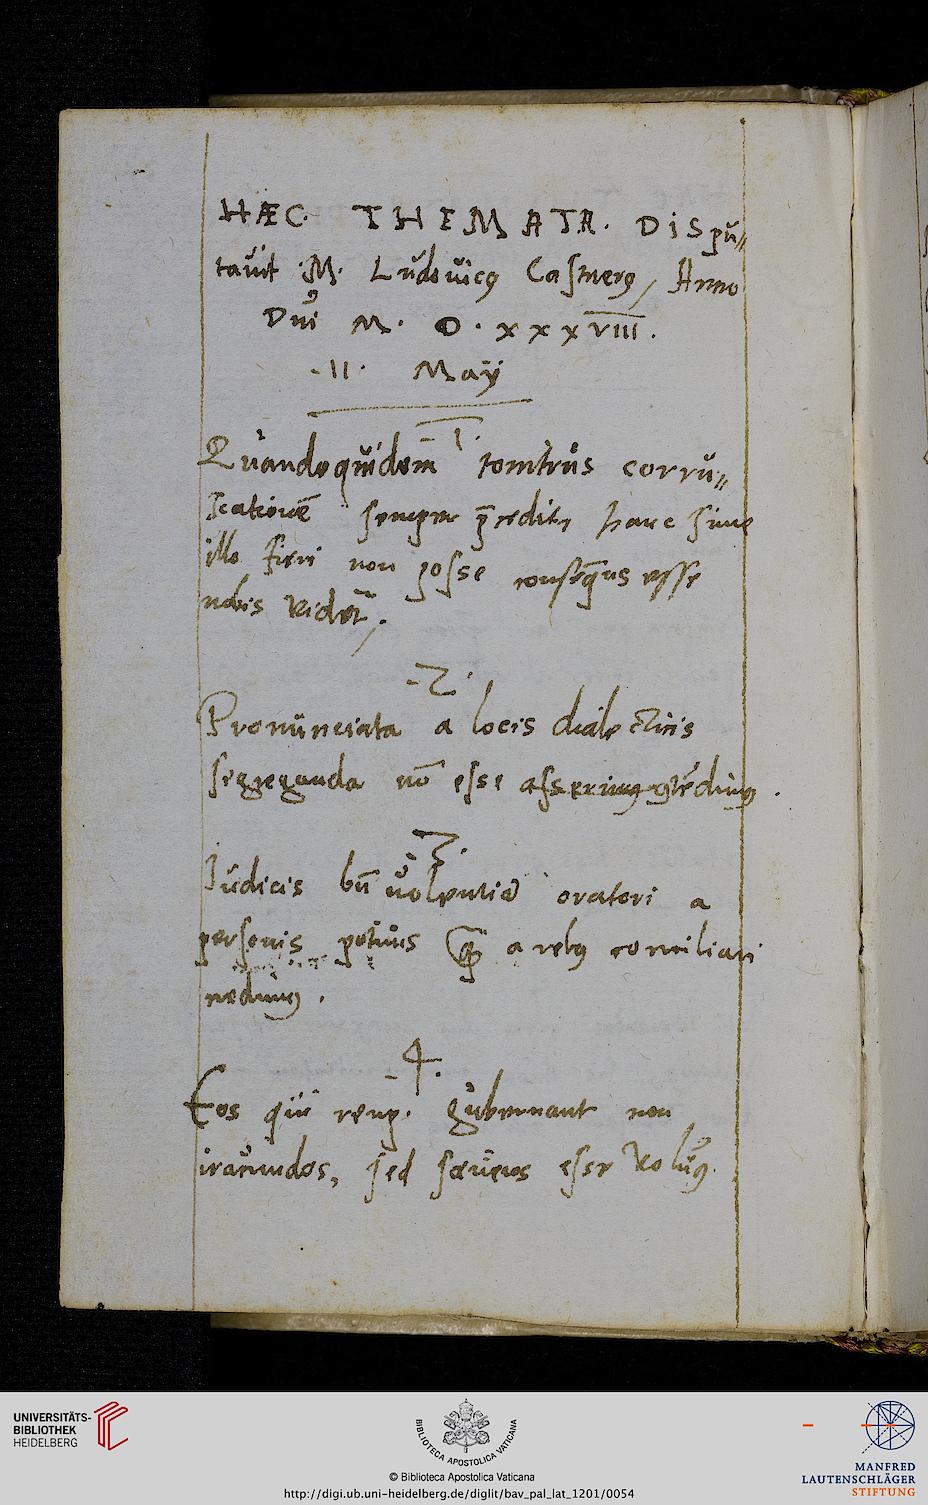 HÆC. THEMATA. Dispu〃
tauit .M. Ludouicꝯ Castnerꝯ, Anno
Dni M. D. xxxviii.
.11. May
.1.
Quandoquidem tonitrus corru〃
scationē semper p̄cedit, hanc sine
illo fieri non posse conseq̄ns esse
nobis videt᷑,
.2.
Pronunciata a locis dialecticis
segreganda nō esse
.3.
Iudicis oratori a
personis potius a rebꝯ conciliari
.4.
Eos qui remp. gubernant non
iracundos, sed saeuos esse volum̄ꝯ.
UNIVERSITÄTS-
BIBLIOTHEK
HEIDELBERG
BIBLIOTECA APOSTOLICA VATICANA
© Biblioteca Apostolica Vaticana
http://digi.ub.uni-heidelberg.de/diglit/bav_pal_lat_1201/0054
MANFRED
LAUTENSCHLÄGER
STIFTUNG